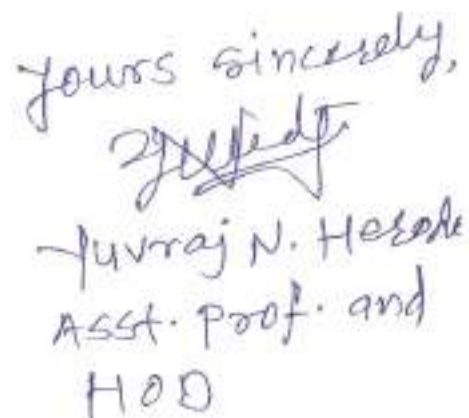 Yours sincerely,
Yuvraj N.
Asst. Prof. and
HOD